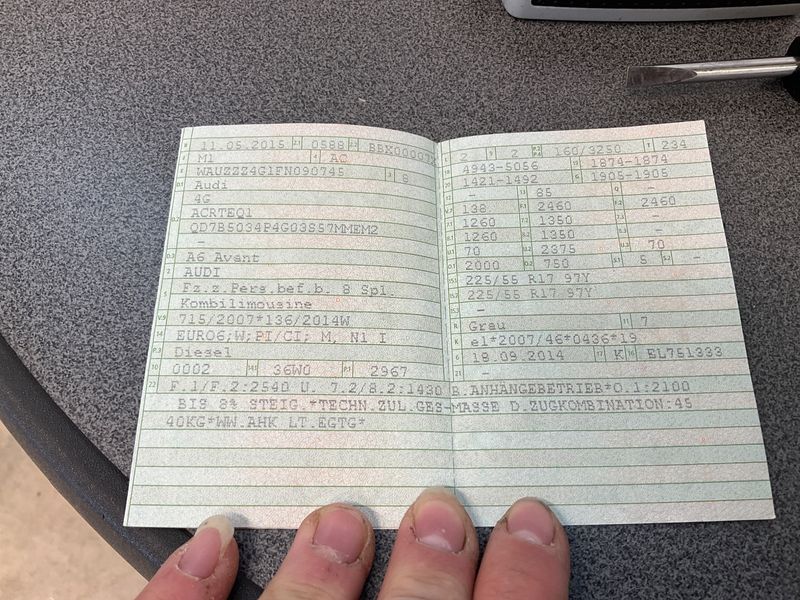 B 11.05.2015 2.1 0588 2.2 BBX00007
J M1 4 AC
E WAUZZZ4G1FN090745 3 8
D.1 Audi
4G
D.2 ACRTEQ1
QD7B5034P4G03S57MMEM2
-
D.3 A6 Avant
2 AUDI
5 Fz.z.Pers.bef.b. 8 Spl.
Kombilimousine
V.9 715/2007*136/2014W
14 EURO6;W;PI/CI; M, N1 I
P.3 Diesel
10 0002 14.1 36W0 P.1 2967
22 F.1/F.2:2540 U. 7.2/8.2:1430 B.ANHÄNGEBETRIEB*O.1:2100
BIS 8% STEIG.*TECHN.ZUL.GES-MASSE D.ZUGKOMBINATION:45
40KG*WW.AHK LT.EGTG*
L 2 9 2 P.2 P.4 160/3250 T 234
18 4943-5056 19 1874-1874
20 1421-1492 G 1905-1905
12 - 13 85 Q -
V.7 138 F.1 2460 F.2 2460
7.1 1260 7.2 1350 7.3 -
8.1 1260 8.2 1350 8.3 -
U.1 70 U.2 2375 U.3 70
O.1 2000 O.2 750 S.1 5 S.2 -
15.1 225/55 R17 97Y
15.2 225/55 R17 97Y
15.3 -
R Grau 11 7
K e1*2007/46*0436*19
6 18.09.2014 17 K 16 EL751333
21 -